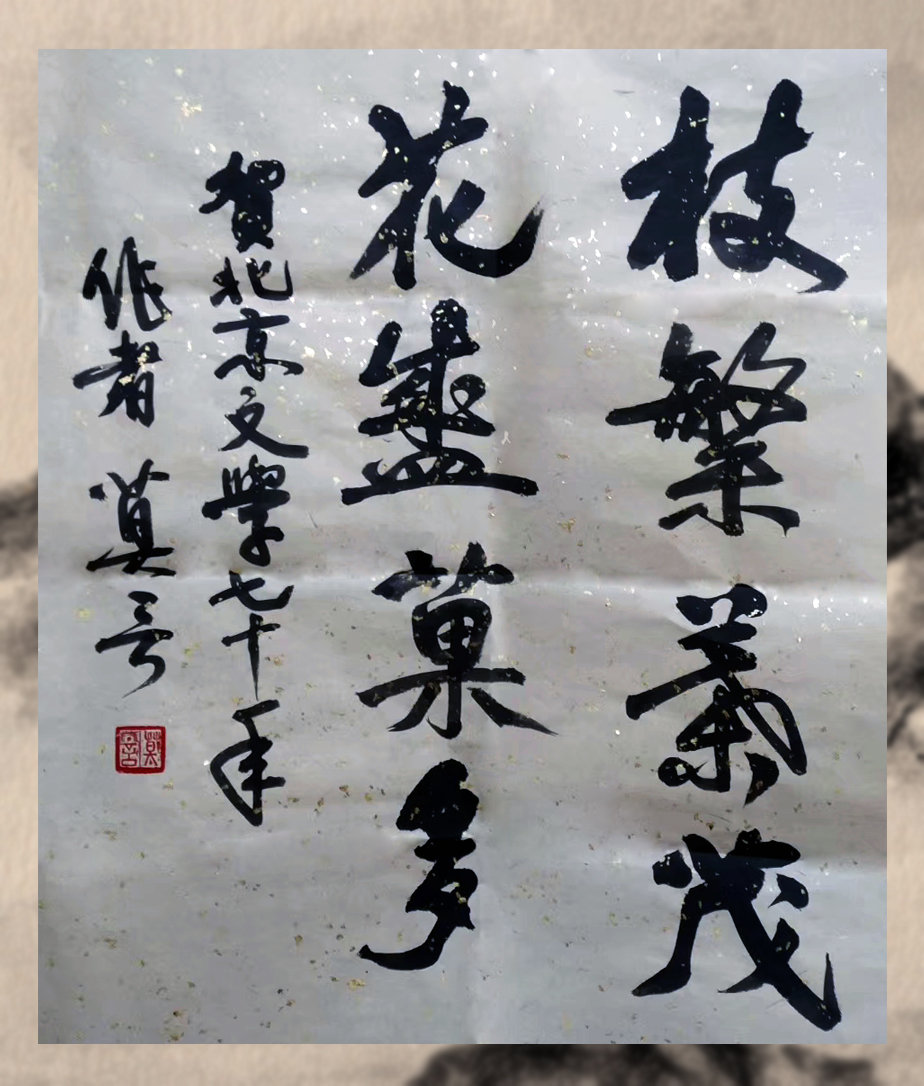 枝繁葉茂
花盛菓多
賀北京文學七十年
作者 莫言
莫言